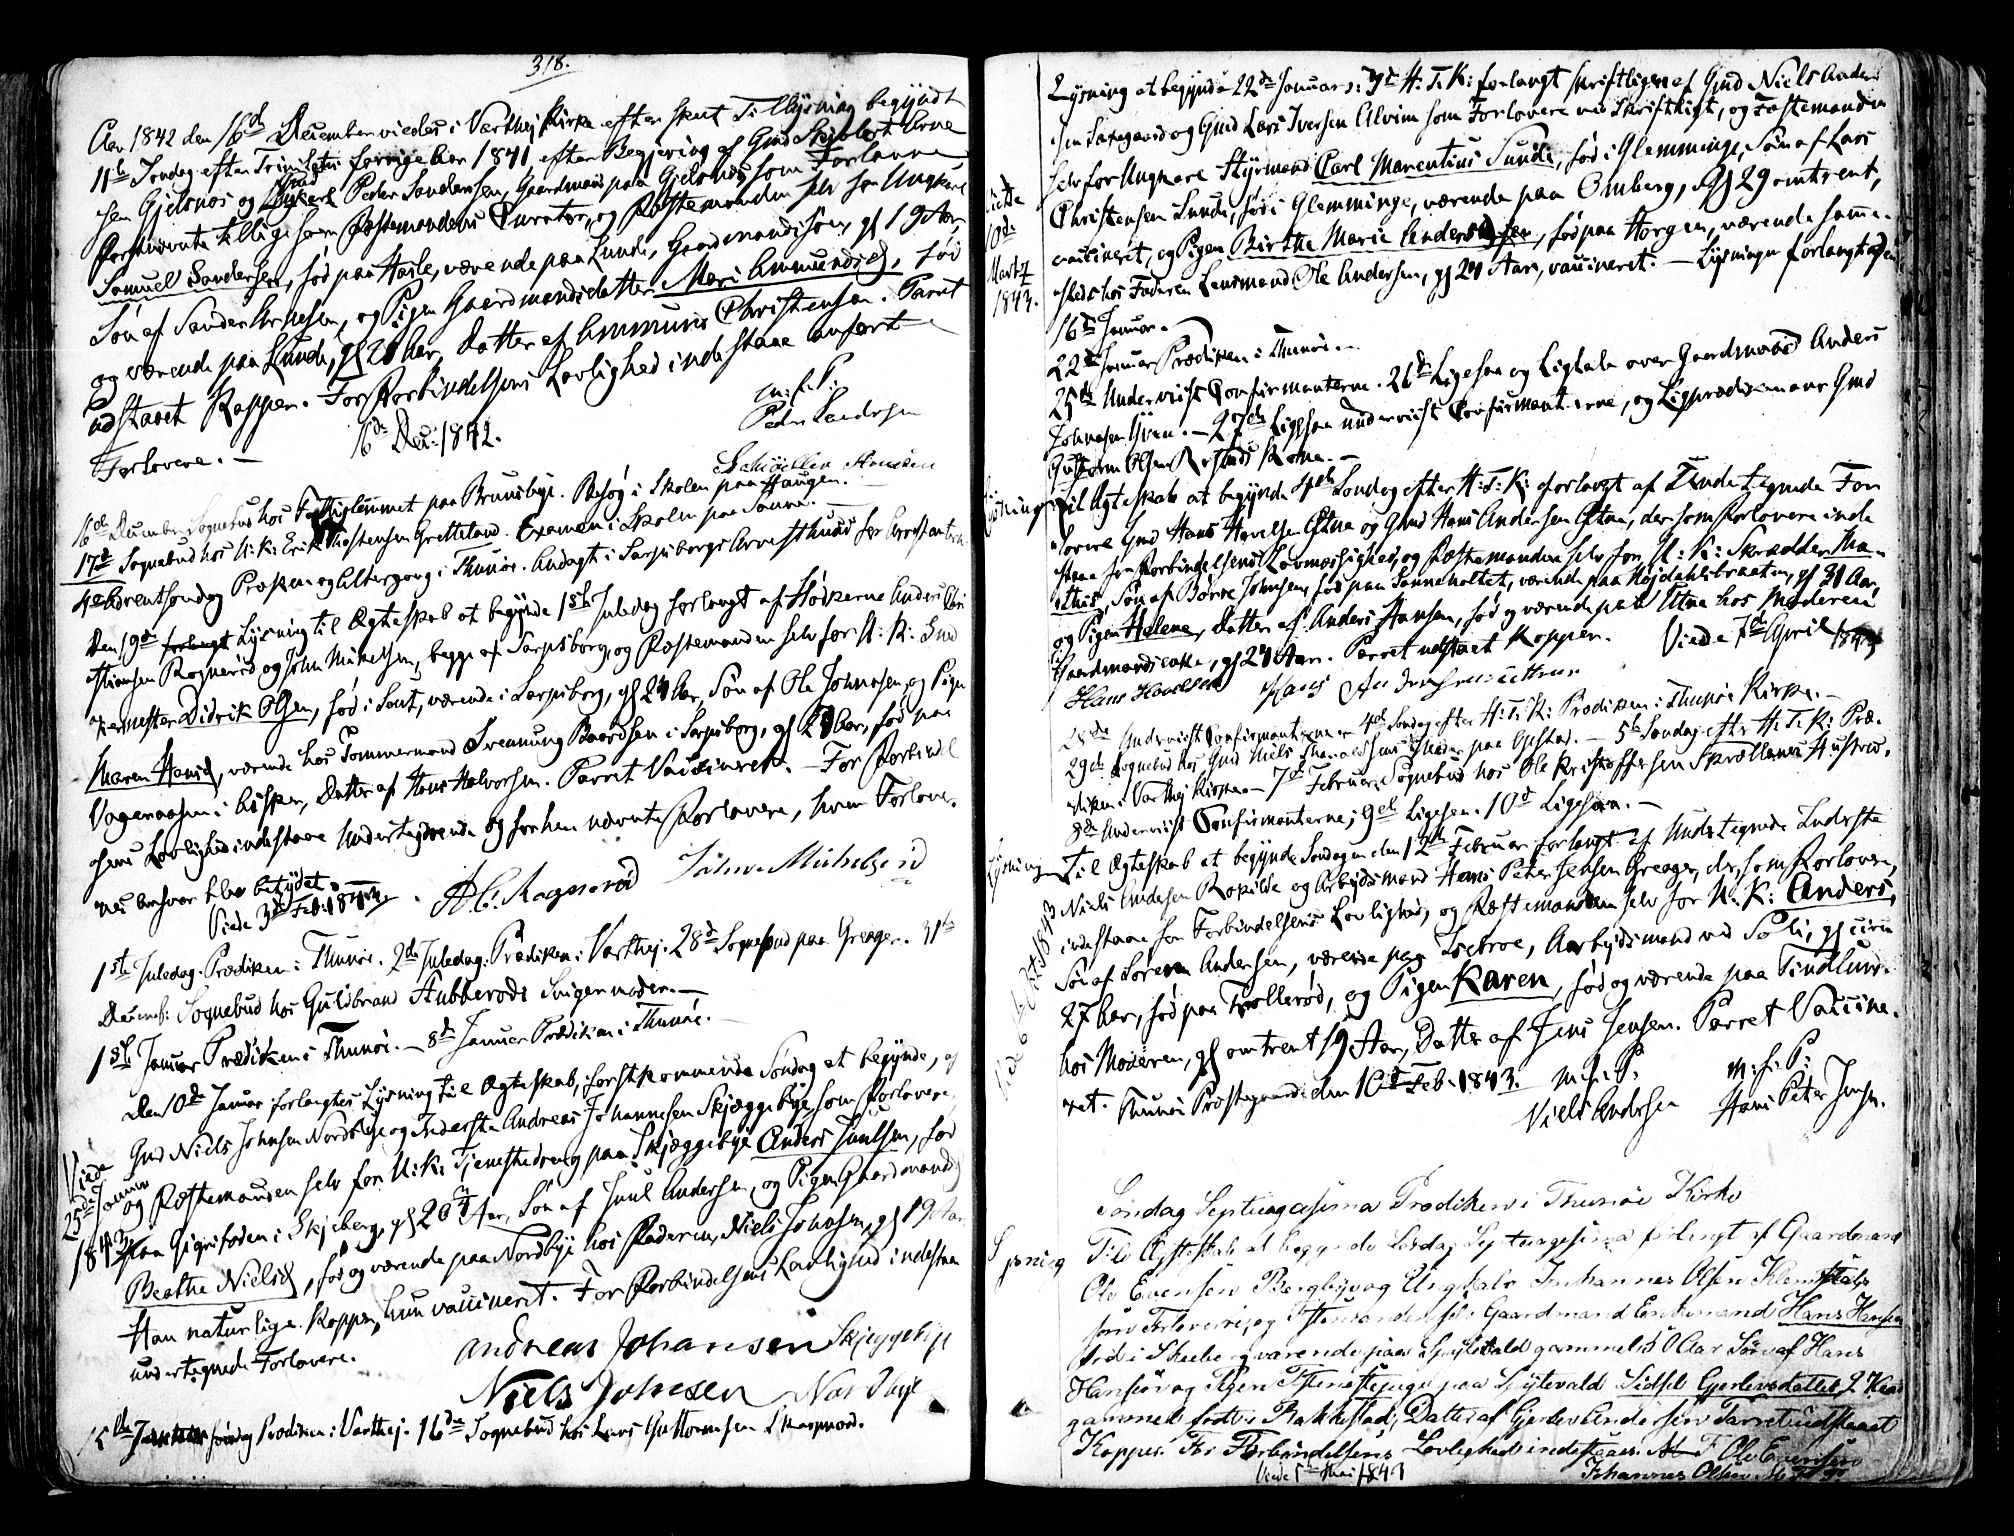 318.
Aar 1842 den 16d December viedes i Varthej Kirke efter skeet Tillysning begyndt
11te Søndag efter Trinitatis forrige Aar 1841, efter Begjering af Gmd Arne
sen Gjelsnes og Peder Sandersen, Gaardmand paa Gjelsnes som Forlovere
Forbenevnte tillige som Fæstemandens Curator, og Fæstemanden selv for Ungkarl
Samuel Sandersen, fød paa Hasle, værende paa Lunde, Gaardmandssøn, gl 19 Aar,
Søn af Sander Arnesen, og Pigen Gaardmandsdatter Mari Amundsd, fød
og værende paa Lunde, gl 28 Aar, Datter af Ammund Christensen. Parret
udstaaet Kopper. For Forbindelsens Lovlighed indestaae anførte
Forlovere. — 16de Dec: 1842.
m. f. P:
Peder Sandersen
Arnesen
16de December Sognebud hos Fattiglemmet paa Brunsbye. Besøg i Skolen paa Haugen. —
17d Sognebud hos U: K: Erik Grettland. Examen i Skolen paa —
4de Adventsøndag Præken og Altergang i Thunøe. Andagt i Sarpsborgs Arresthuus for Arrestanterne
Den 19de Lysning til Ægteskab at begynde 1ste Juledag forlangt af Høkerne Anders Chri
stiansen Rognerød og John Mikelsen, begge af Sarpsborg, og Fæstemanden selv for U: K: Smd
Didrik Olsen, fød i Sont, værende i Sarpsborg, gl 24 Aar, Søn af Ole Johnsen, og Pigen
Maren Hansd, værende hos Tømmermand Svenung Baardsen i Sarpsborg, gl 28 Aar, fød paa
i Asker, Datter af Hans Halvorsen. Parret Vaccineret. — For Forbindel
sens Lovlighed indestaae Undertegnede og forhen nævnte Forlovere, hvem Forlover
nes Ansvar blev betydet.
Viede 3de Feb: 1843. A. C. Rognerød Johne Michelsen
1ste Juledag Prædiken i Thunøe. 2den Juledag Prædiken i Varthej. 28d Sognebud paa Greager. 31te
Decemb: Sognebud hos Guldbrand Stubberøds Svigermoder. —
1ste Januar Prædiken i Thunøe. — 8de Januar Prædiken i Thunøe. —
Den 10de Januar forlangtes Lysning til Ægteskab, førstkommende Søndag at begynde, af
Gmd Niels Johnsen Nordbye og Inderste Andreas Johannesen Skjæggebye, som Forlovere,
og Fæstemanden selv for U: K: Tjenestedreng paa Skjæggebye Anders Juulsen, fød
paa Gigrisøden i Skjeberg, gl 20 Aar, Søn af Juul Andersen, og Pigen Gaardmandsd
Beathe Nielsd, fød og værende paa Nordbye hos Faderen, Niels Johnsen, gl 19 Aar.
Han naturlige Kopper, hun vaccineret. For Forbindelsens Lovlighed indestaae
undertegnede Forlovere.
Viede
25de Januar
1843
Andreas Johansen Skjeggebye
Niels Johnsen Nordbye
15de Januar Søndag Prædiken i Varthej. 16de Sognebud hos Lars Guttormsen Skarpnord.
Lysning at begynde 22de Januar s: 3d H. T. K: forlangt skriftligen af Gmd Niels Ander
sen Saxegaard og Gmd Lars Iversen Alvim som Forlovere ved Skriftligt, og Fæstemanden
selv for Ungkarl Styrmand Carl Marentius Sunde, fød i Glemminge, Søn af Lars
Christensen Sunde, fød i Glemminge, værende paa Omberg, gl 29 omtrent,
vaccineret, og Pigen Birthe Marie Andersen, fød paa Horgen, værende samme-
steds hos Faderen Lensmand Ole Andersen, gl 24 Aar, vaccineret. — Lysningen forlangtes den
16de Januar. —
Viede
10de
Marts
1843.
22de Januar Prædiken i Thunøe. —
25de Underviist Confirmanterne. 26de Ligesaa og Ligtale over Gaardmand Anders
Johnsen Yven. — 27de Ligesaa underviist Confirmanterne, og Ligprædiken over Gmd
Guttorm Olsen Kone. —
Lysning
Til Ægteskab at begynde 4de Søndag efter H: T: K: forlangt af Undertegnede For
lovere Gmd Hans Havelsen Etne og Gmd Hans Andersen Etne, der som Forlovere inde
staae for Forbindelsens Lovmæssighed, og Fæstemanden selv for U: K: Skrædder Ma-
this, Søn af Børre Johnsen, fød paa Sanneholtet, værende paa Højdahlsbraaten, gl 31 Aar,
og Pigen Helene, Datter af Anders Hansen, fød og værende paa Etne hos Moderen
Gaardmandsenke, gl 24 Aar. Parret udstaaet Kopper. Viede 7de April 1843
Hans Havelsen Hans Andersen Ettne.
28de Underviist Confirmanterne. 4de Søndag efter H: T: K: Prædiken i Thunøe Kirke. —
29de Sognebud hos Gmd Niels Moder paa Gystad. — 5te Søndag efter H. T. K: Præ-
diken i Varthej Kirke. — 7de Februar Sognebud hos Ole Kristoffersen Skrællenes Hustrue,
8de Underviist Confirmanterne; 9de Ligesaa. 10d Ligesaa. —
Lysning
Til Ægteskab at begynde Søndagen den 12te Februar forlangt af Undertegnede Inderste
Niels Andersen Roxilde og Arbejdsmand Hans Peter Jensen Greager, der, som Forlovere,
indestaae for Forbindelsens Lovlighed, og Fæstemanden selv for U: K: Anders,
Søn af Søren Andersen, værende paa Isebroe, Arbejdsmand ved Soli, gl circa
27 Aar, fød paa Trollerød, og Pigen Karen, fød og værende paa Tindlund
hos Moderen, gl omtrent 19 Aar, Datter af Jens Jensen. Parret Vaccine-
ret. Thunøe Præstegaard den 10de Feb. 1843. m. f. P: m: f: P:
Niels Andersen Hans Peter Jensen.
Søndag Septuagesima Prædiken i Thunøe Kirke
Lysning
Til Ægteskab at begynde Søndag Septuagesima forlangt af Gaardmand
Ole Evensen Bergbye og Ungkarl Johannes Olsen
som Forlovere, og Fæstemanden selv Gaardmand Enkemand Hans Hansen
fød i Skeeberg værende paa Spydevald gammel 50 Aar Søn af Hans
Hansen og Pigen Tjenestepige paa Spydevald Sidsel Gjerlovsdatter, 2 Aar
gammel født i Rakkestad, Datter af Gjerlov Andersen Parret udstaaet
Kopper. For Forbindelsens Lovlighed indestaaer. Ole Evensen
Viede 5te Mai 1843 Johannes Olsen